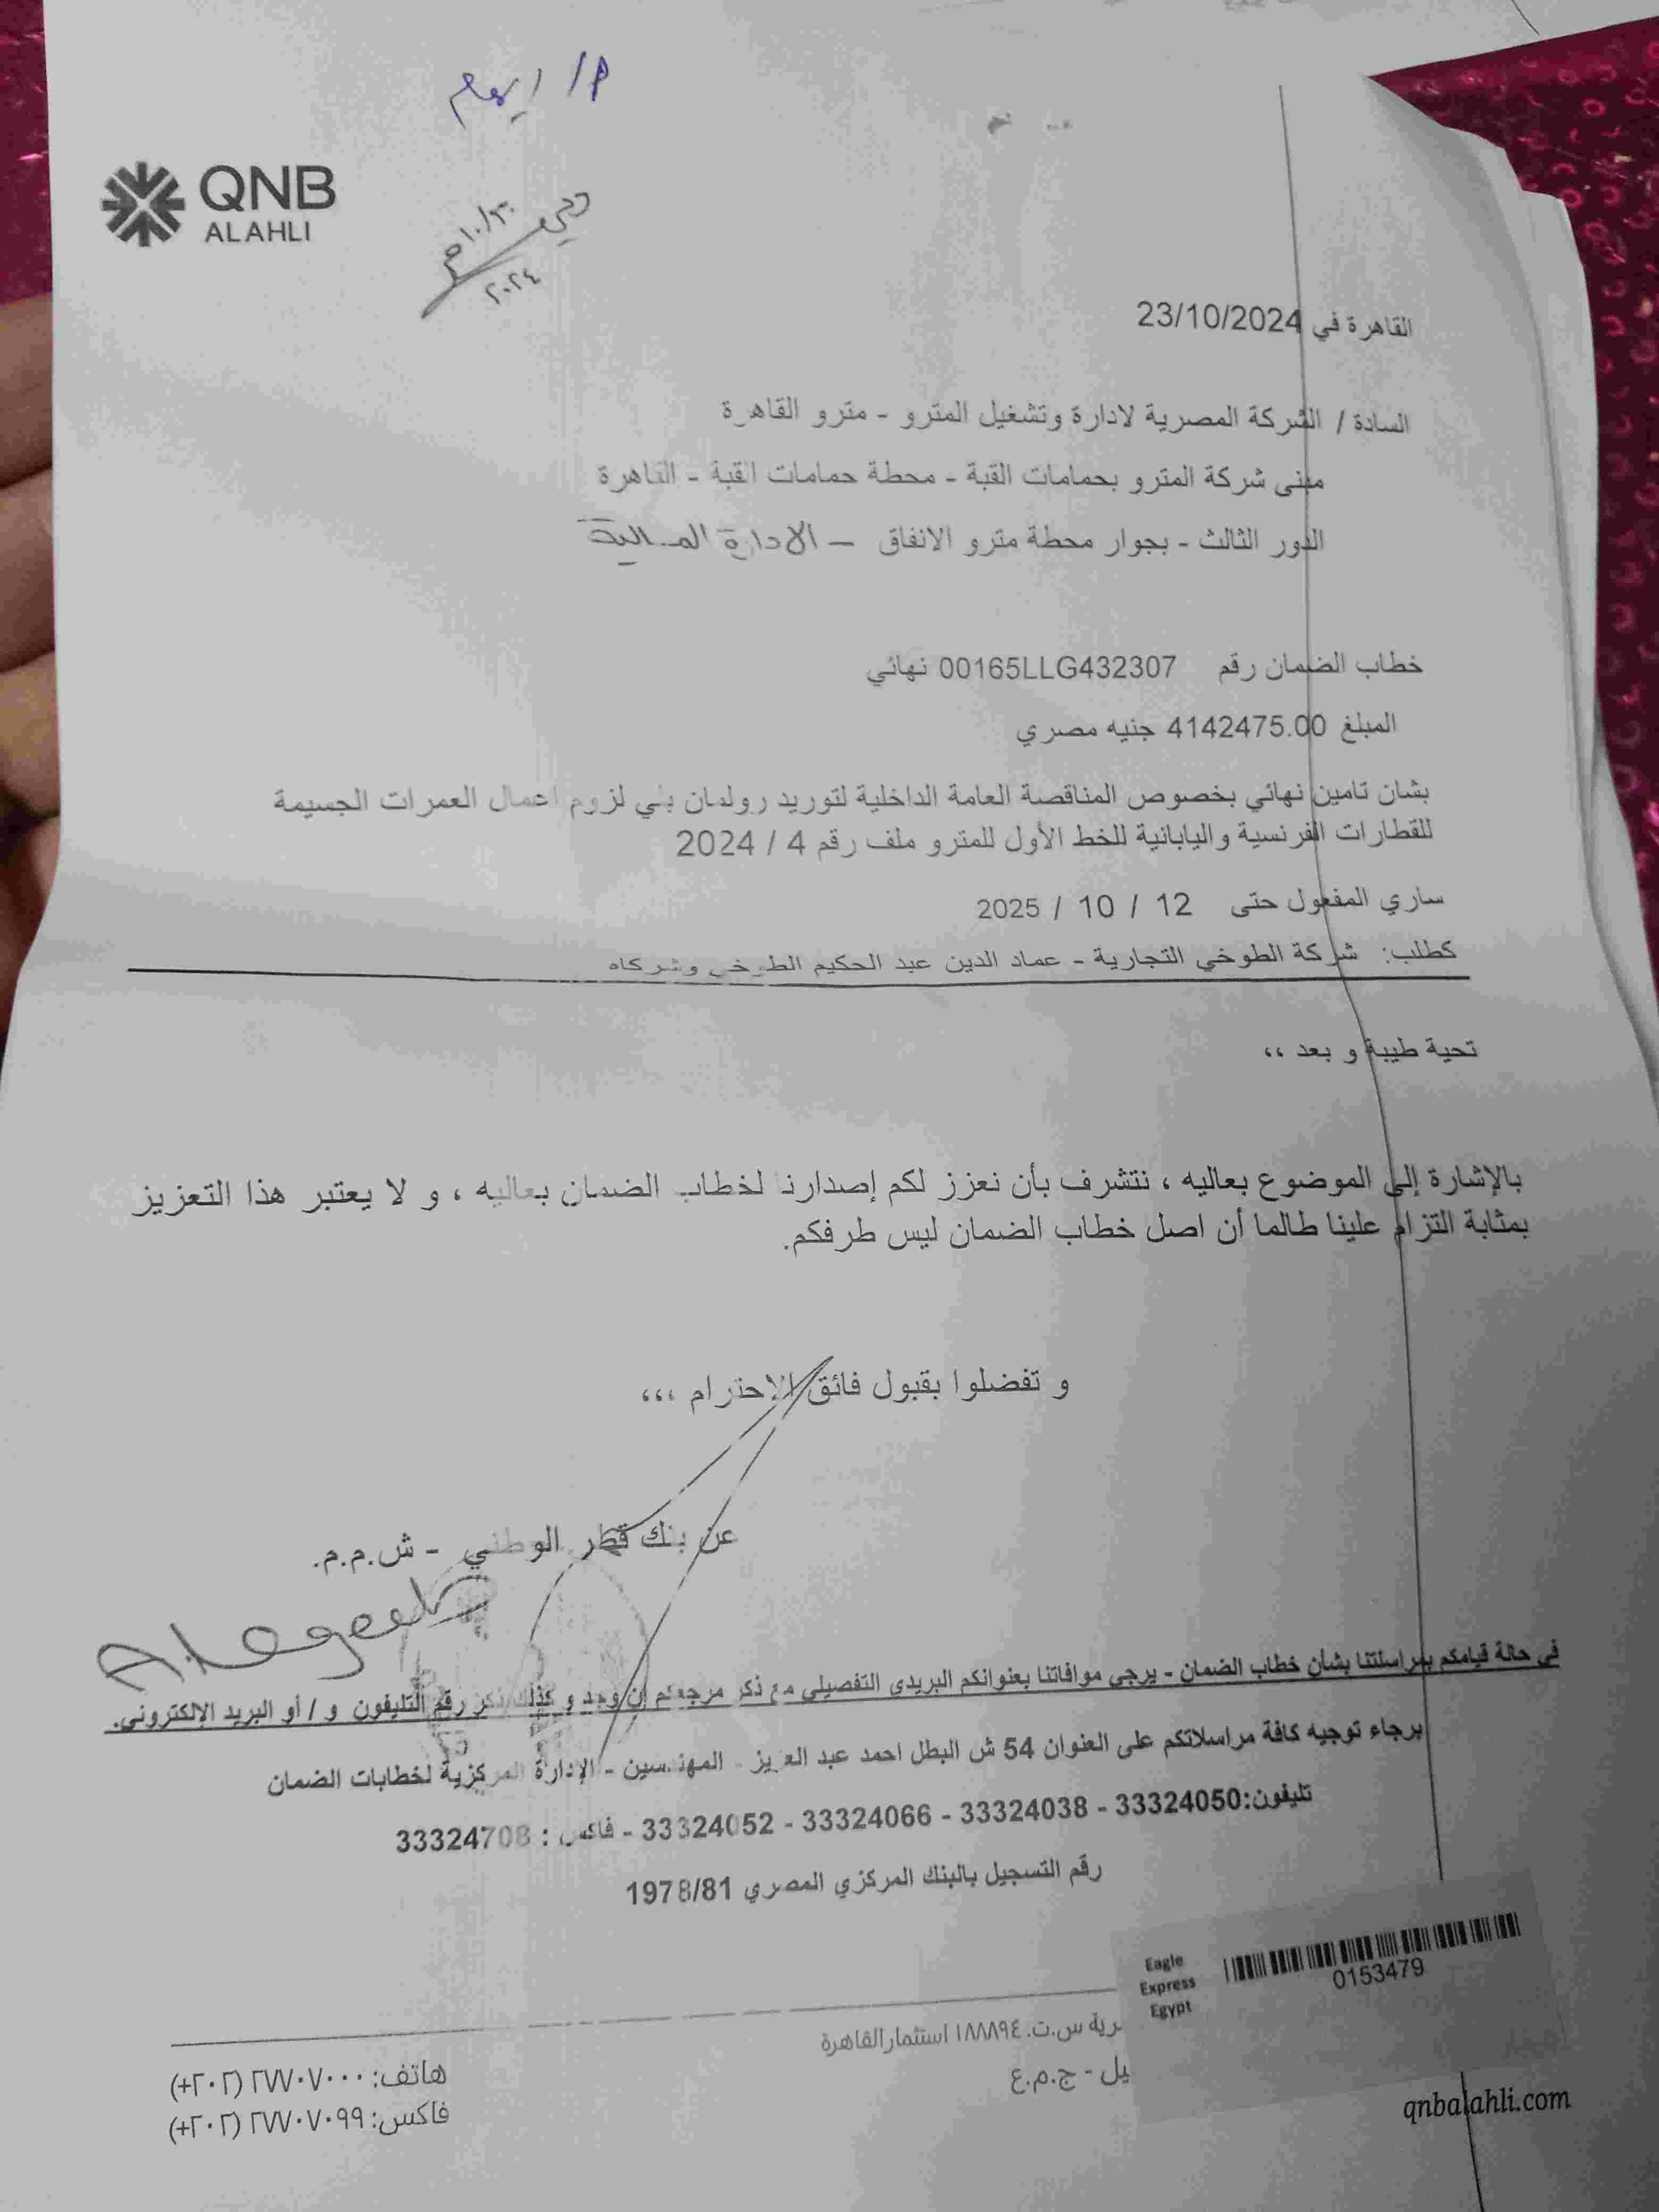 م/ ايهاب
QNB
ALAHLI
١٠/٣٠
٢٠٢٤
القاهرة في 23/10/2024
السادة / الشركة المصرية لادارة وتشغيل المترو - مترو القاهرة
مبنى شركة المترو بحمامات القبة - محطة حمامات القبة - القاهرة
الدور الثالث - بجوار محطة مترو الانفاق – الادارة المالية
خطاب الضمان رقم 00165LLG432307 نهائي
المبلغ 4142475.00 جنيه مصري
بشان تامين نهائي بخصوص المناقصة العامة الداخلية لتوريد رولمان بلي لزوم اعمال العمرات الجسيمة
للقطارات الفرنسية واليابانية للخط الأول للمترو ملف رقم 4 / 2024
ساري المفعول حتى 12 / 10 / 2025
كطلب: شركة الطوخي التجارية - عماد الدين عبد الحكيم الطوخي وشركاه
تحية طيبة و بعد ،،
بالإشارة إلى الموضوع بعاليه ، نتشرف بأن نعزز لكم إصدارنا لخطاب الضمان بعاليه ، و لا يعتبر هذا التعزيز
بمثابة التزام علينا طالما أن اصل خطاب الضمان ليس طرفكم.
و تفضلوا بقبول فائق الاحترام ،،،
عن بنك قطر الوطني - ش.م.م.
في حالة قيامكم بمراسلتنا بشأن خطاب الضمان - يرجى موافاتنا بعنوانكم البريدى التفصيلي مع ذكر مرجعكم إن وجد و كذلك ذكر رقم التليفون و / أو البريد الإلكتروني.
برجاء توجيه كافة مراسلاتكم على العنوان 54 ش البطل احمد عبد العزيز - المهندسين - الإدارة المركزية لخطابات الضمان
تليفون:33324050 - 33324038 - 33324066 - 33324052 - فاكس : 33324708
رقم التسجيل بالبنك المركزي المصري 1978/81
Eagle
Express
Egypt
0153479
رية س.ت. ١٨٨٨٩٤ استثمار القاهرة
يل - ج.م.ع
هاتف: ٢٧٧٠٧٠٠٠ (٢٠٢+)
فاكس: ٢٧٧٠٧٠٩٩ (٢٠٢+)
qnbalahli.com